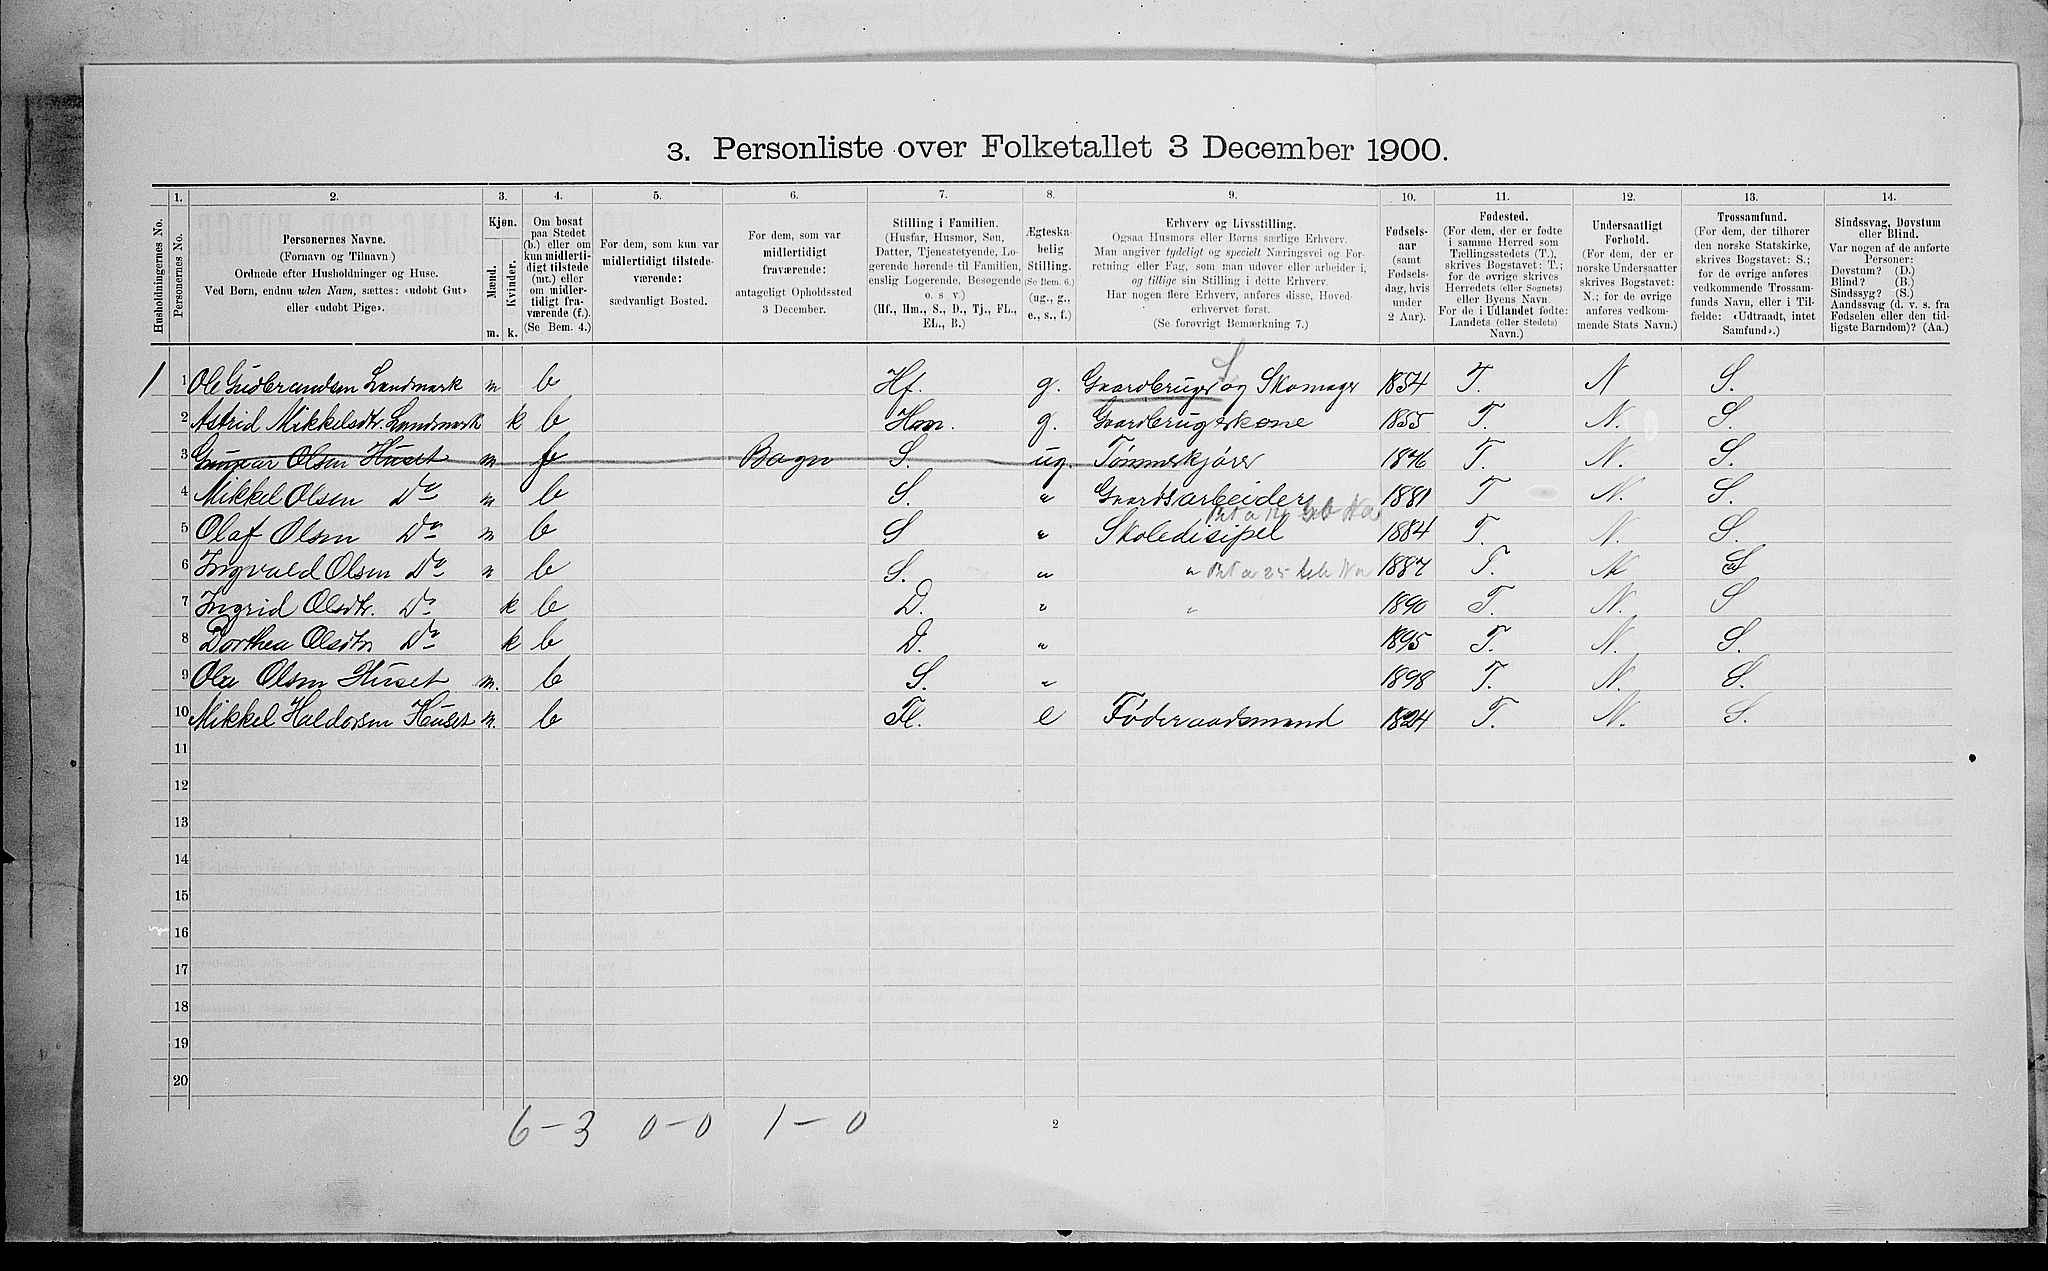 3. Personliste over Folketallet 3 December 1900.
Husholdningernes No.
1.
Personernes No.
2.
Personernes Navne.
(Fornavn og Tilnavn)
Ordnede efter Husholdninger og Huse.
Ved Børn, endnu uden Navn, sættes: «udøbt Gut»
eller «udøbt Pige».
3.
Kjøn.
Mænd. Kvinder.
m. k.
4.
Om bosat
paa Stedet
(b.) eller om
kun midlerti-
digt tilstede
(mt.) eller
om midler-
tidigt fra-
værende (f.).
(Se Bem. 4.)
5.
For dem, som kun var
midlertidigt tilstede-
værende:
sædvanligt Bosted.
6.
For dem, som var
midlertidigt
fraværende:
antageligt Opholdssted
3 December.
7.
Stilling i Familien.
(Husfar, Husmor, Søn,
Datter, Tjenestetyende, Lo-
gerende hørende til Familien,
enslig Logerende, Besøgende
o. s v.)
(Hf., Hm., S., D., Tj., FL.,
EL., B.)
8.
Ægteska-
belig
Stilling.
(Se Bem. 6.)
(ug., g.,
e., s., f.)
9.
Erhverv og Livsstilling.
Ogsaa Husmors eller Børns særlige Erhverv.
Man angiver tydeligt og specielt Næringsvei og For-
retning eller Fag, som man udøver eller arbeider i,
og tillige sin Stilling i dette Erhverv.
Har nogen flere Erhverv, anføres disse, Hoved-
erhvervet først.
(Se forøvrigt Bemærkning 7.)
10.
Fødsels-
aar
(samt
Fødsels-
dag, hvis
under
2 Aar).
11.
Fødested.
(For dem, der er fødte
i samme Herred som
Tællingsstedets (T.),
skrives Bogstavet: T.;
for de øvrige skrives
Herredets (eller Sognets)
eller Byens Navn.
For de i Udlandet fødte:
Landets (eller Stedets)
Navn.)
12.
Undersaatligt
Forhold.
(For dem, der er
norske Undersaatter
skrives Bogstavet:
N.; for de øvrige
anføres vedkom-
mende Stats Navn.)
13.
Trossamfund.
(For dem, der tilhører
den norske Statskirke,
skrives Bogstavet: S.;
for de øvrige anføres
vedkommende Trossam-
funds Navn, eller i Til-
fælde: «Udtraadt, intet
Samfund».)
14.
Sindssvag, Døvstum
eller Blind.
Var nogen af de anførte
Personer:
Døvstum? (D.)
Blind? (B.)
Sindssyg? (S.)
Aandssvag (d. v. s. fra
Fødselen eller den tid-
ligste Barndom)? (Aa.)
1 1 Ole Gudbrandsen Landmark m b Hf. g. Gaardbruger og Skomager 1854 T. N S.
2 Astrid Mikkelsdtr. Landmark k b Hm. g. Gaardbrugerkone 1855 T. N. S.
3 Gunnar Olsen Huset m f Bagn S. ug. Tømmerkjører 1876 T. N. S.
4 Mikkel Olsen Do m b S. " Gaardsarbeider 1881 T N. S.
5 Olaf Olsen Do m b S " Skoledisipel 1884 T. N. S.
6 Ingvald Olsen Do m b S. " " 1887 T. N S
7 Ingrid Olsdtr. Do k b D. " " 1890 T. N. S
8 Dorthea Olsdtr Do k b D. " 1895 T. N. S.
9 Ole Olsen Huset m. b S. " 1898 T. N. S.
10 Mikkel Haldorsen Huset m. b Fl. e Føderaadsmand 1824 T. N. S.
11
12
13
14
15
16
17
18
19
20
6 - 3 0 - 0 1 - 0
2